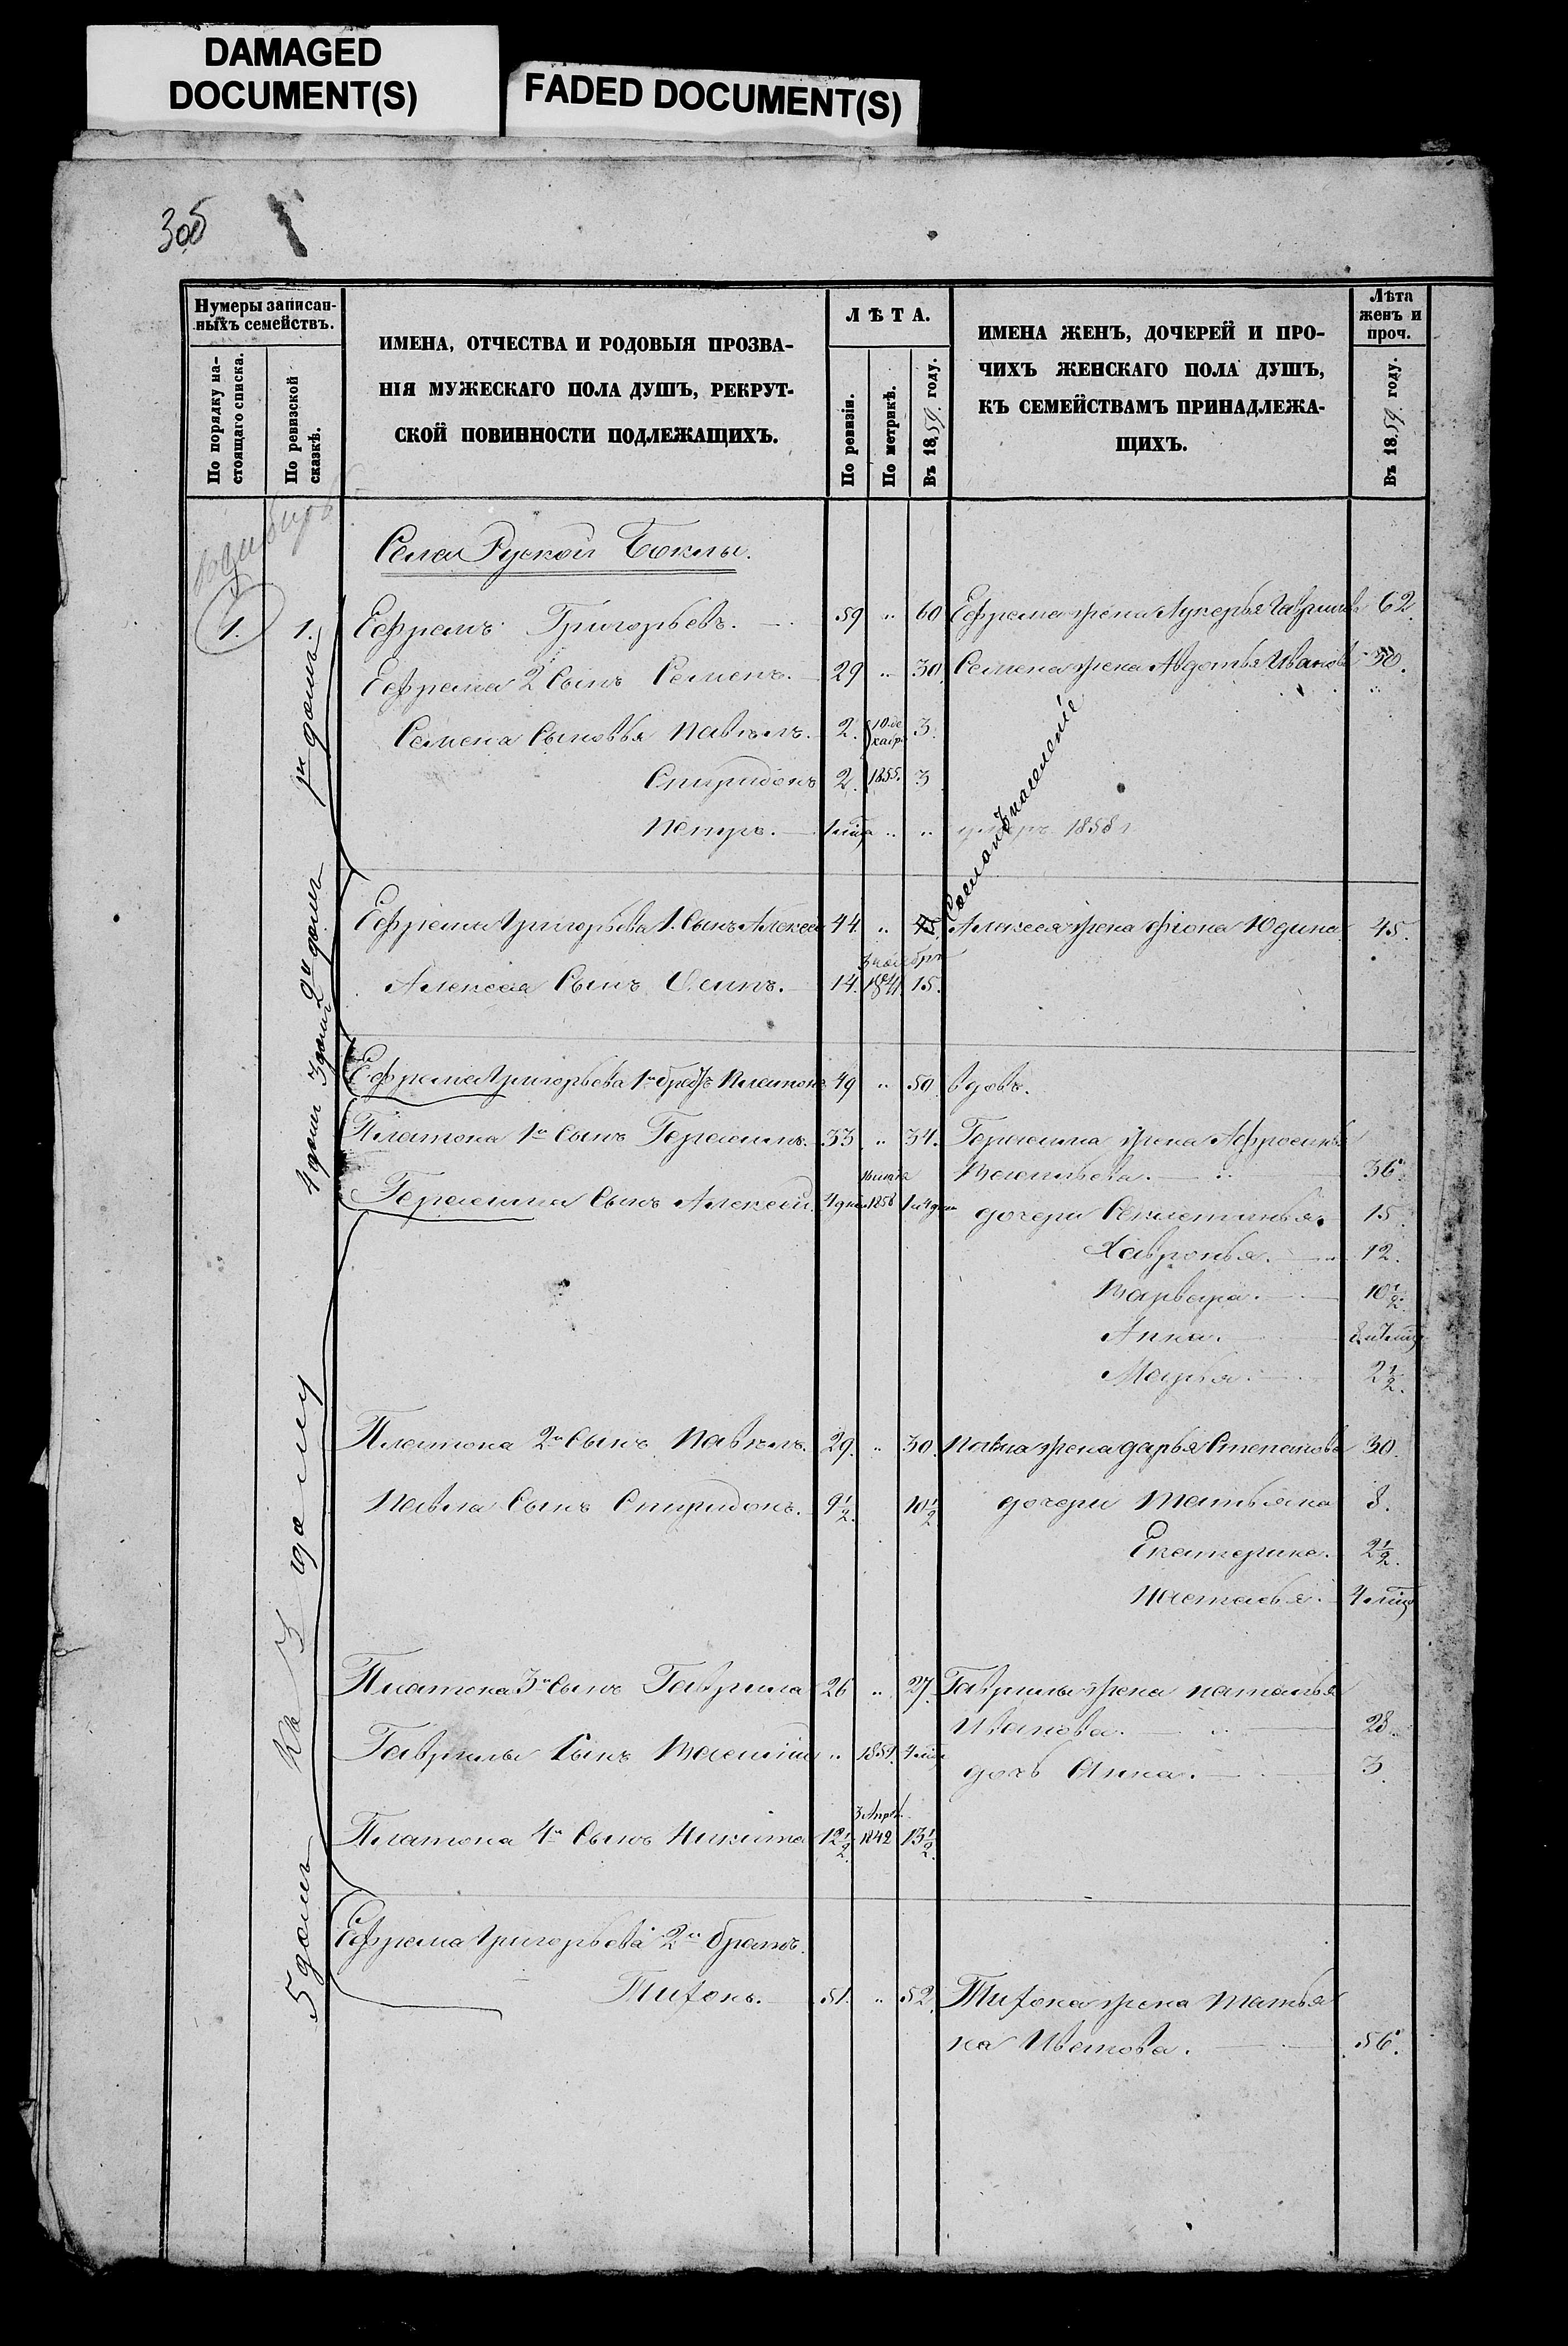 DAMAGED
DOCUMENT(S)
FADED DOCUMENT(S)
305
Нумеры записан-
ныхъ семействъ.
По порядку на-
стоящаго списка.
По ревизской
сказкѣ.
ИМЕНА, ОТЧЕСТВА И РОДОВЫЯ ПРОЗВА-
НІЯ МУЖЕСКАГО ПОЛА ДУШЪ, РЕКРУТ-
СКОЙ ПОВИННОСТИ ПОДЛЕЖАЩИХЪ.
ЛѢТА.
По ревизіи.
По метрикѣ.
Въ 1859. году.
ИМЕНА ЖЕНЪ, ДОЧЕРЕЙ И ПРО-
ЧИХЪ ЖЕНСКАГО ПОЛА ДУШЪ,
КЪ СЕМЕЙСТВАМЪ ПРИНАДЛЕЖА-
ЩИХЪ.
Лѣта
женъ и
проч.
Въ 1859. году.
Села Руской Боклы.
1. 1. Ефремъ Григорьевъ. 59 " 60 Ефрема жена Лукерья Гаврилова 62.
1й домъ
Ефрема 2 Сынъ Семенъ. 29 " 30. Семена жена Авдотья Иванова 30.
Семена Сыновья Павелъ. 2. 3.
Спиридонъ 2. 1855. 3
Петръ. 1 мѣс " " умеръ 1858 г
2й домъ
Ефрема Григорьева 1. Сынъ Алексей 44 " Алексея жена Фіона Юдина 45.
3 ноября
Алексея Сынъ Осипъ. 14. 1844. 15.
3 домъ
Ефрема Григорьева 1й братъ Платонъ 49 " 50. вдовъ.
4 домъ
Платона 1й Сынъ Герасимъ. 33 " 34. Герасима жена Афросинья
Васильева. 36.
Герасима Сынъ Алексей. 4 дни 1858 1 и 4 дни дочери 15
Хавронья. 12.
Варвара. 10½.
Анна.
Марья. 2½.
Къ 3 дому
Платона 2й Сынъ Павелъ. 29. " 30. Павла жена Дарья Степанова 30.
Павла Сынъ Спиридонъ. 9½. 10½ дочери Татьяна 8.
Екатерина. 2½.
Наталья. 4 мѣс
Платона 3й Сынъ Гаврила 26 " 27. Гаврилы жена Наталья
Иванова. 28.
Гаврилы Сынъ Василій " 4 мѣс
дочь Анна. 3.
3 Апрѣл.
Платона 4й Сынъ Никита 12½. 1842 13½.
5 домъ
Ефрема Григорьева 2й братъ
Тихонъ. 51. " 52. Тихона жена Татья
на Иванова. 56.